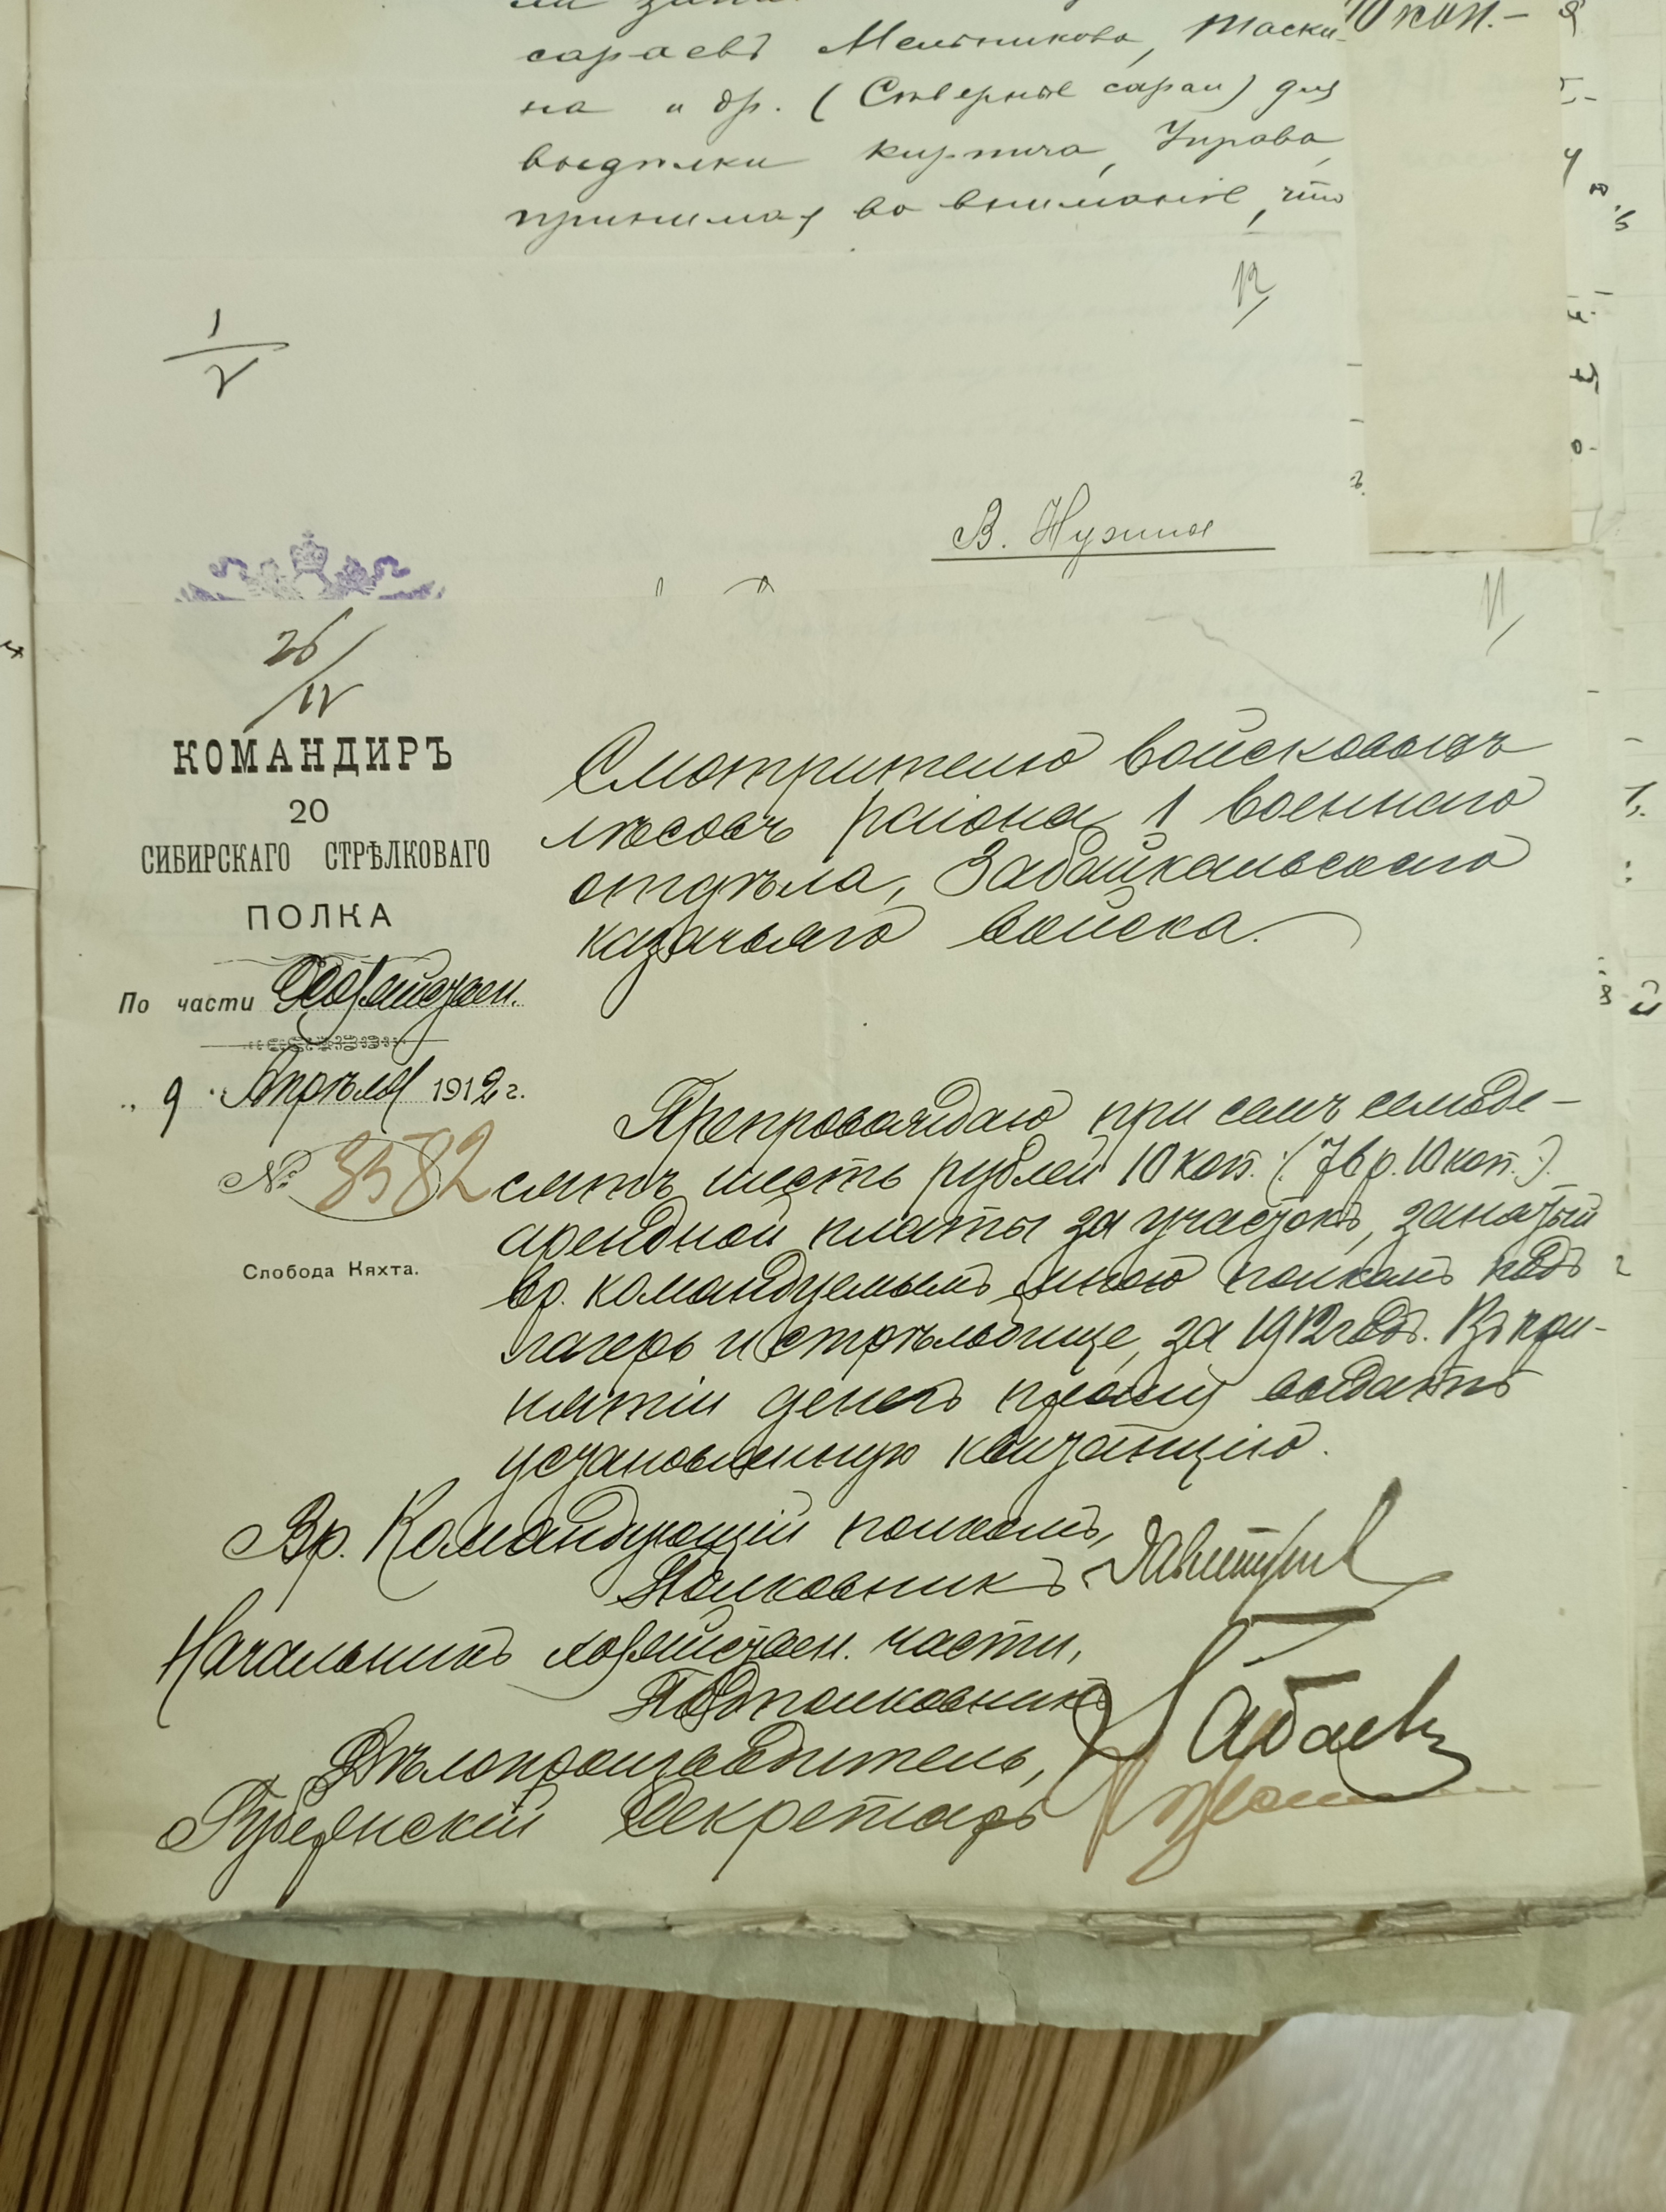 сараевъ Мельникова, Таски-
на и др. (Северные сараи) для
выделки кирпича, Управа,
принимая во внимание, что
10 коп. -
12
1/V
В. Нужное
11
26/IV
КОМАНДИРЪ
20
СИБИРСКАГО СТРѢЛКОВАГО
ПОЛКА
По части Хозяйствен.
„ 9 " Апрѣля 1912 г.
№ 3582
Слобода Кяхта.
Смотрителю войсковыхъ
лѣсовъ района 1 военнаго
отдѣла, Забайкальскаго
казачьяго войска.
Препровождаю при семъ семьде-
сятъ шесть рублей 10 коп. (: 76 р. 10 коп. :).
арендной платы за участокъ, занятый
вр. командуемымъ мною полкомъ подъ
лагерь и стрѣльбище, за 1912 годъ. Въ при-
нятіи денегъ прошу выдать
установленную квитанцію.
Вр. Командующій полкомъ,
Полковникъ
Начальникъ хозяйствен. части,
Подполковникъ Абаевъ
Дѣлопроизводитель,
Губернскій Секретарь